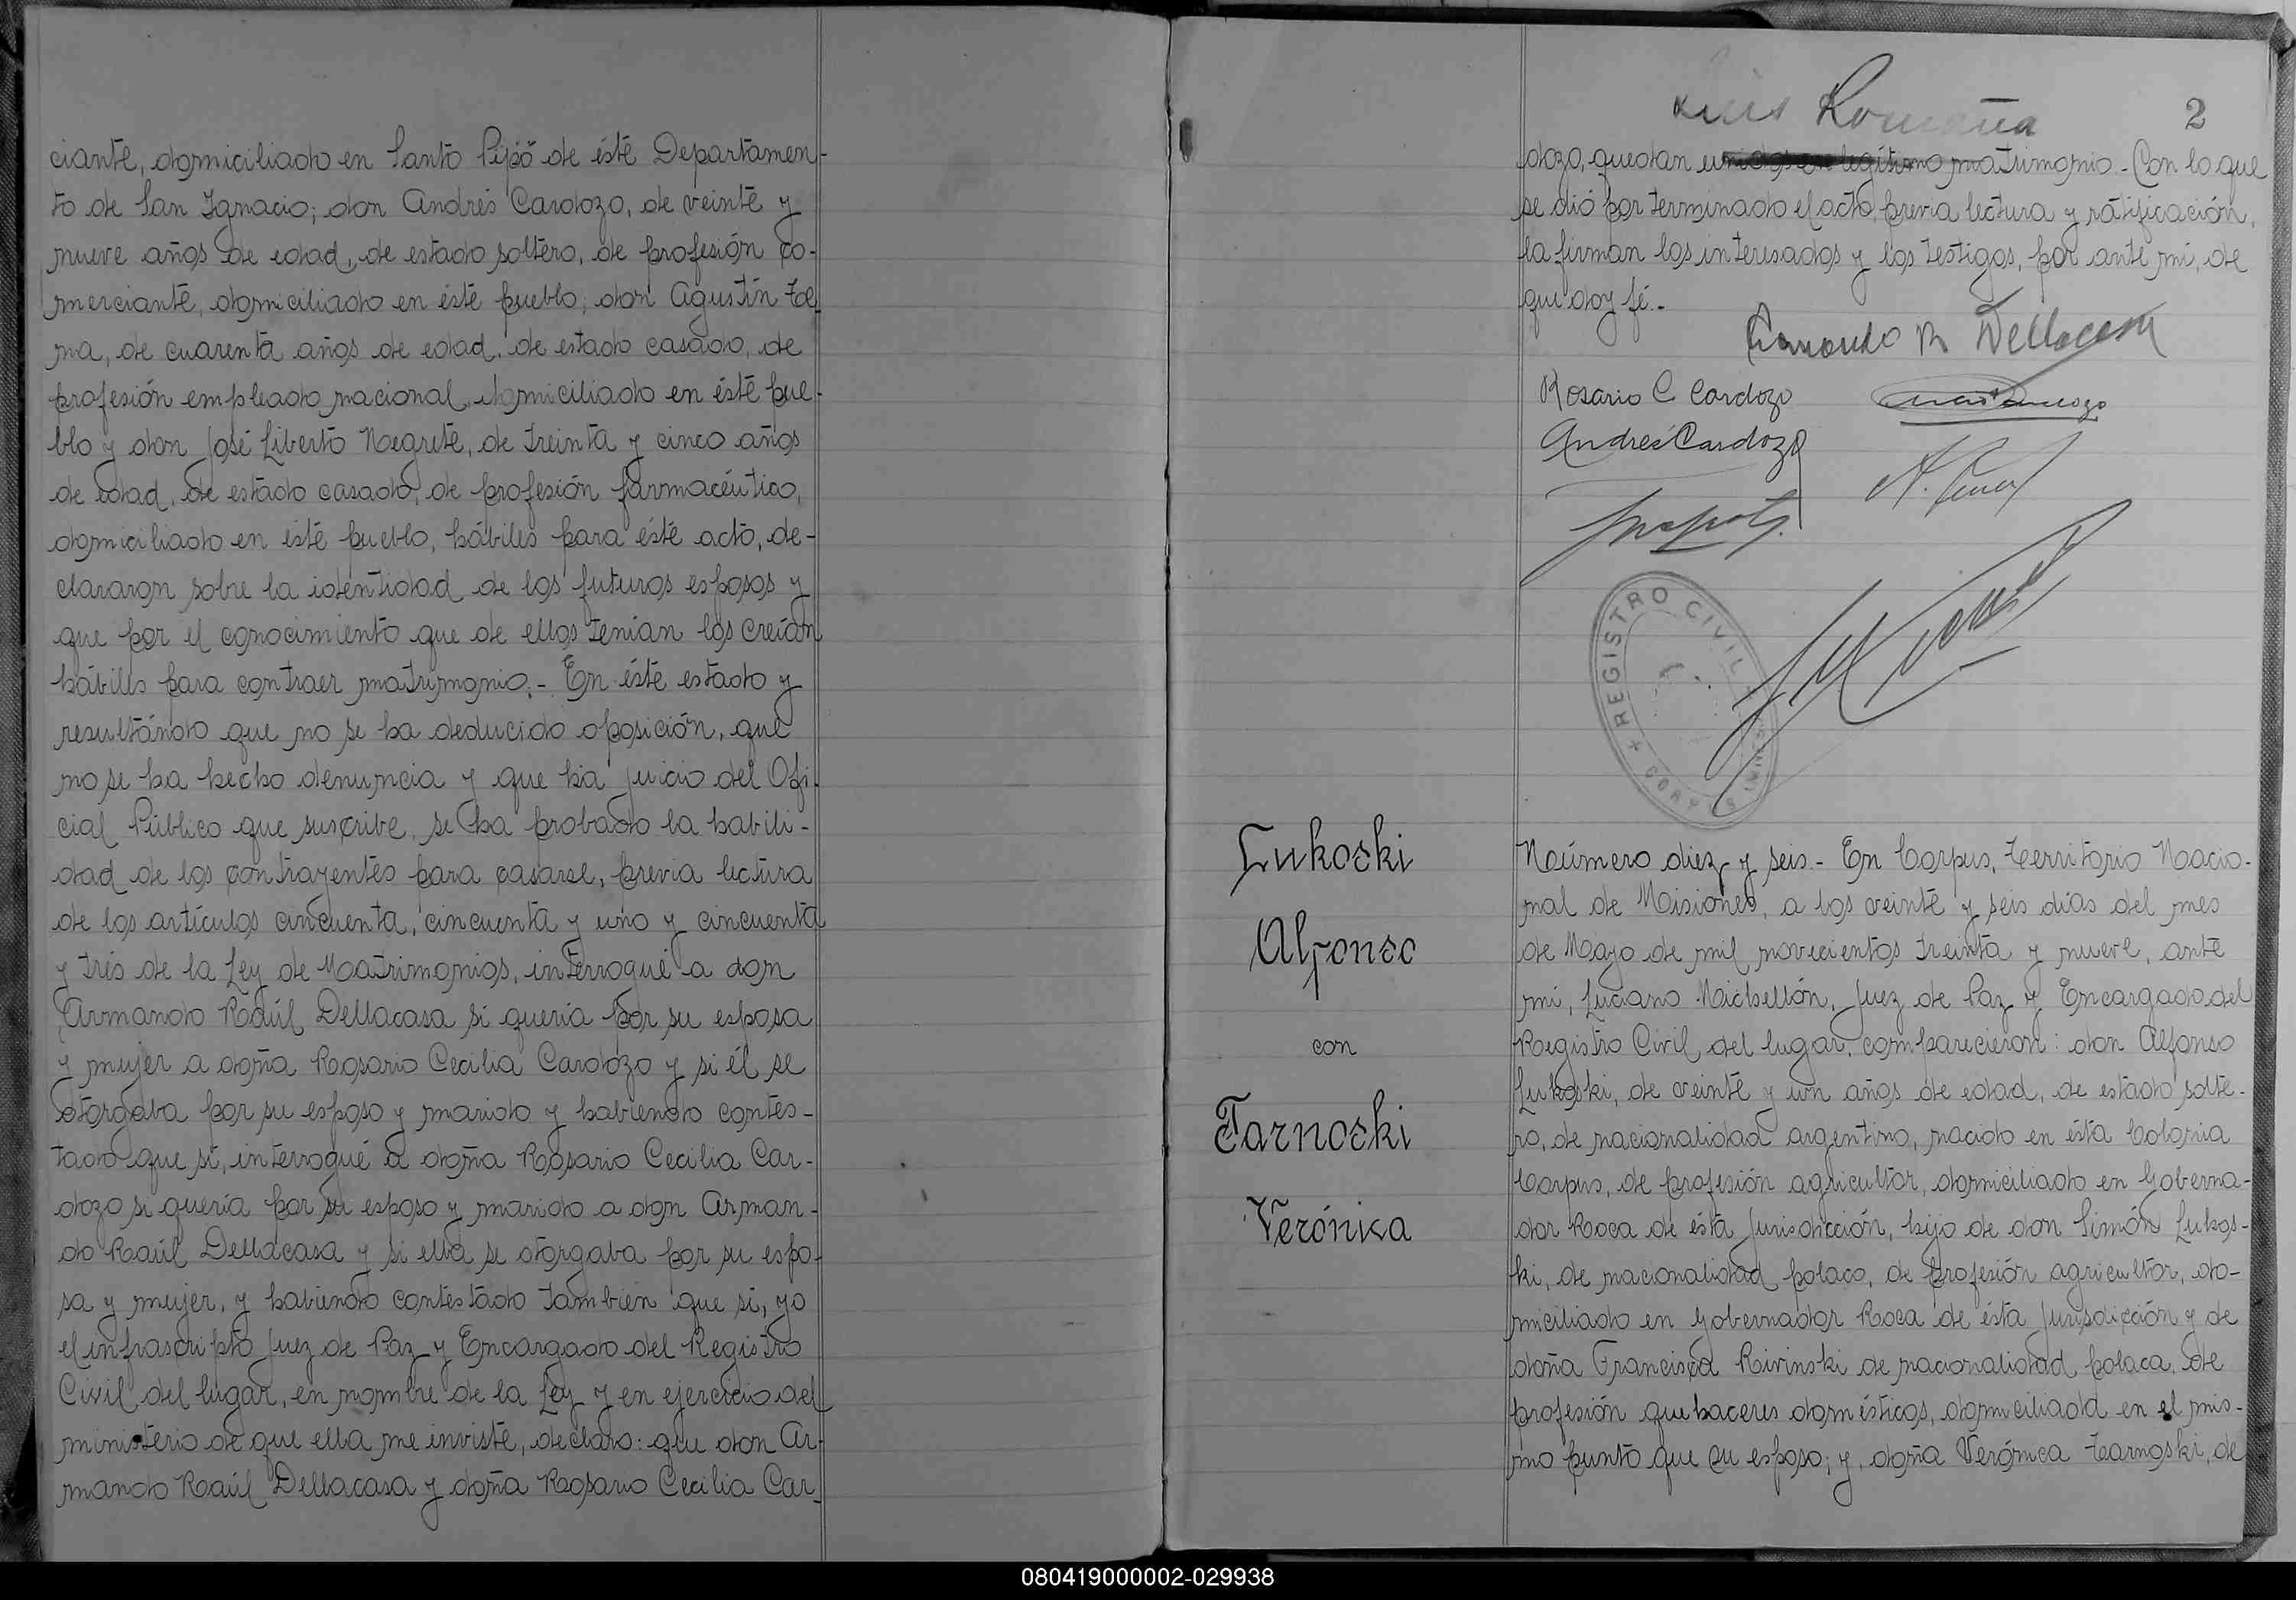 ciante, domiciliado en Santo Pipó de éste Departamen-
to de San Ignacio; don Andrés Cardozo, de veinte y
nueve años de edad, de estado soltero, de profesión co-
merciante, domiciliado en éste pueblo; don Agustín
na, de cuarenta años de edad, de estado casado, de
profesión empleado nacional, domiciliado en éste pue-
blo y don José Liberto Negrete, de treinta y cinco años
de edad, de estado casado, de profesión farmacéutico,
domiciliado en éste pueblo, hábiles para éste acto, de-
clararon sobre la identidad de los futuros esposos y
que por el conocimiento que de ellos tenían los creían
hábiles para contraer matrimonio.- En éste estado y
resultándo que no se ha deducido oposición, que
no se ha hecho denuncia y que há juicio del Ofi-
cial Público que suscribe, se ha probado la habili-
dad de los contrayentes para casarse, previa lectura
de los artículos cincuenta, cincuenta y uno y cincuenta
y trés de la Ley de Matrimonios, interrogué a don
Armando Raúl Dellacasa si quería por su esposa
y mujer a doña Rosario Cecilia Cardozo y si él se
otorgaba por su esposo y marido y habiendo contes-
tado que sí, interrogué a doña Rosario Cecilia Car-
dozo si quería por su esposo y marido a don Arman-
do Raúl Dellacasa y si ella se otorgaba por su espo-
sa y mujer, y habiendo contestado tambien que sí, yo
el infrascripto Juez de Paz y Encargado del Registro
Civil del lugar, en nombre de la Ley y en ejercicio del
ministerio de que ella me inviste, declaro: que don Ar-
mando Raúl Dellacasa y doña Rosario Cecilia Car-
Luis Romaña
2
dozo, quedan unidos en legítimo matrimonio.- Con lo que
se dió por terminado el acto, previa lectura y ratificación,
la firman los interesados y los testigos, por ante mi, de
que doy fé.-
Armando R Dellacasa
Rosario C Cardozo
Andrés Cardozo
REGISTRO CIVIL
CORPUS
Lukoski
Alfonso
con
Tarnoski
Verónica
Número diez y seis.- En Corpus, Territorio Nacio-
nal de Misiones, a los veinte y seis días del mes
de Mayo de mil novecientos treinta y nueve, ante
mi, Luciano Michellón, Juez de Paz y Encargado del
Registro Civil del lugar, comparecieron: don Alfonso
Lukoski, de veinte y un años de edad, de estado solte-
ro, de nacionalidad argentino, nacido en ésta Colonia
Corpus, de profesión agricultor, domiciliado en Goberna-
dor Roca de ésta Jurisdicción, hijo de don Simón Lukos-
ki, de nacionalidad polaco, de profesión agricultor, do-
miciliado en Gobernador Roca de ésta Jurisdicción y de
doña Francisca Rivinski de nacionalidad polaca, de
profesión quehaceres domésticos, domiciliada en el mis-
mo punto que su esposo; y, doña Verónica Tarnoski, de
080419000002-029938